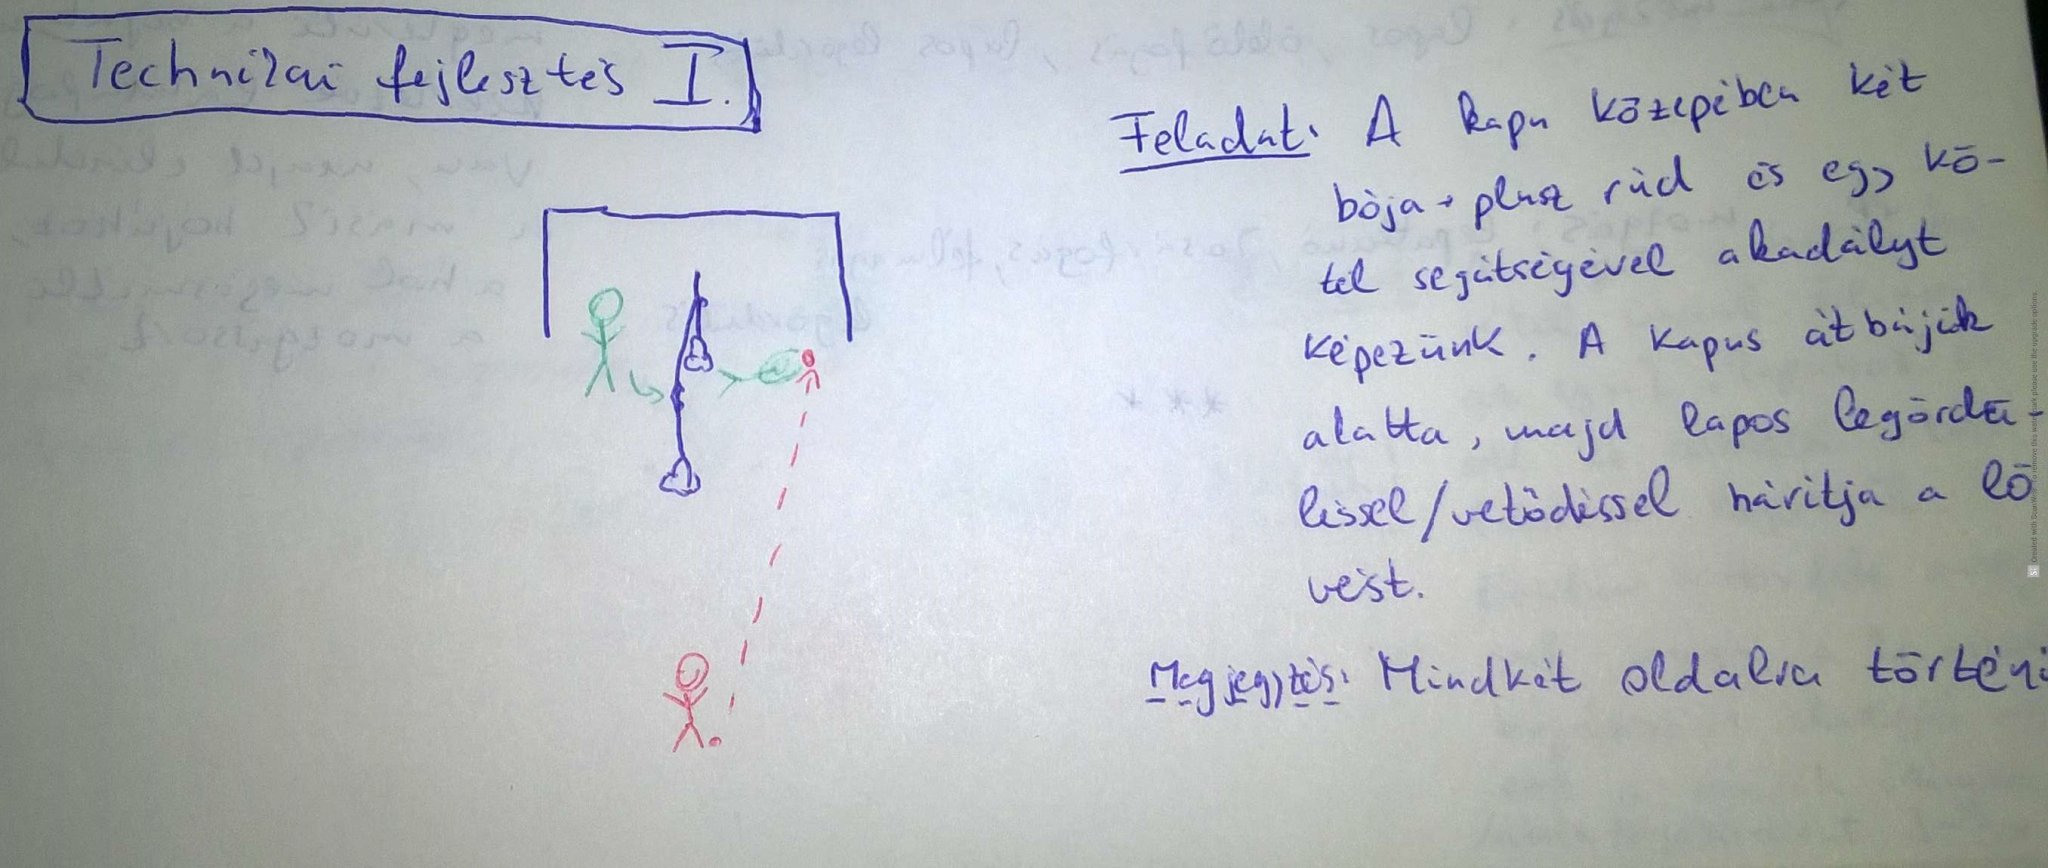 Technikai fejlesztés I.
Feladat: A kapu közepében két
bója + plusz rúd és egy kö-
tél segítségével akadályt
képezünk. A kapus átbújik
alatta, majd lapos legördü-
léssel/vetődéssel hárítja a lö
vést.
Megjegyzés: Mindkét oldalra történi